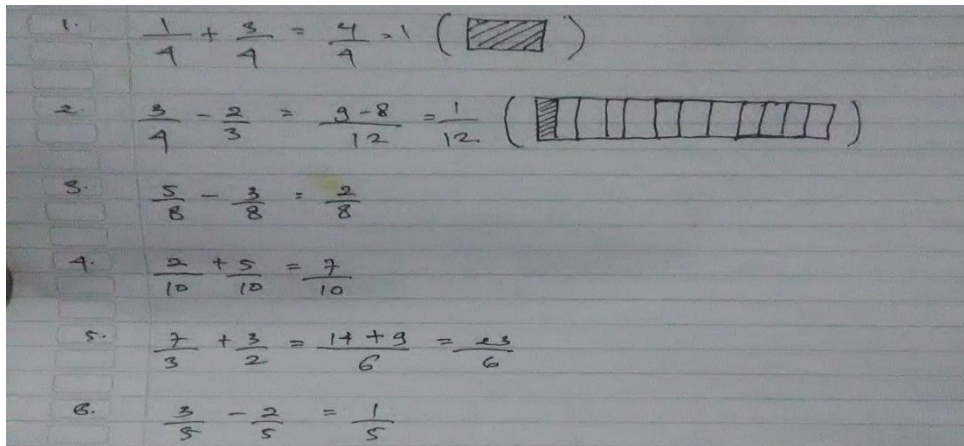 1. 1/4 + 3/4 = 4/4 = 1 ( )
2. 3/4 - 2/3 = 9-8/12 = 1/12 ( )
3. 5/8 - 3/8 = 2/8
4. 2/10 + 5/10 = 7/10
5. 7/3 + 3/2 = 14+9/6 = 23/6
6. 3/5 - 2/5 = 1/5